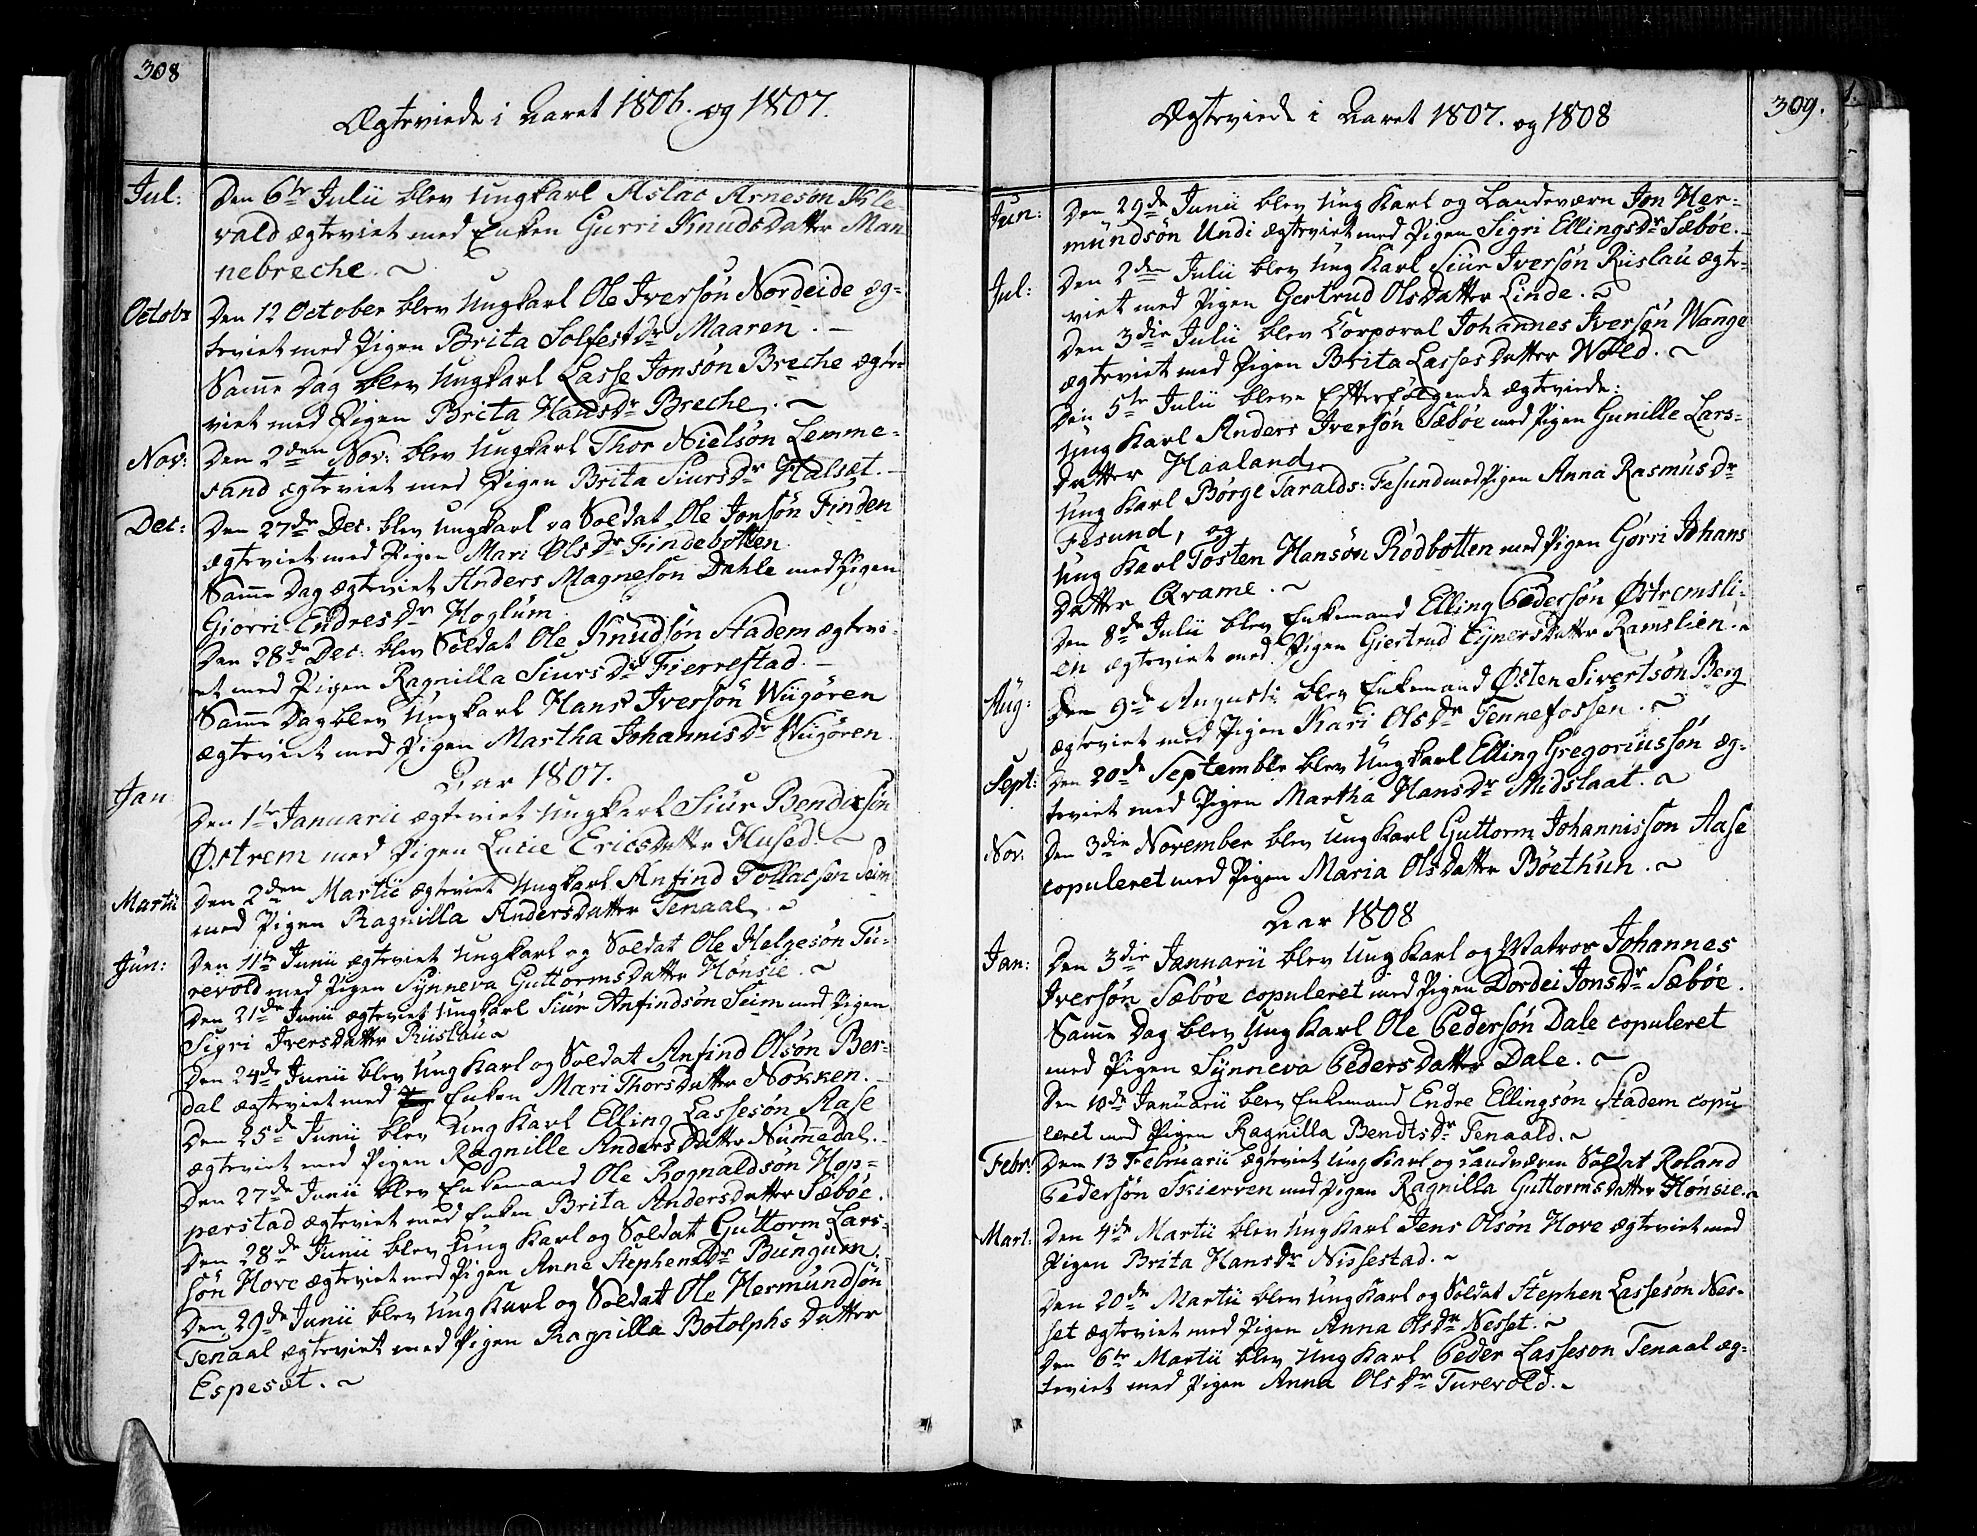 308
Ægteviede i Aaret 1806. og 1807.
Jul: Den 6te Julii blev Ungkarl Aslac Arnesøn Kle-
vald ægteviet med Enken Gurri KnudsDatter Man
nebreche. ~
Octobr Den 12 October blev Ungkarl Ole Iversøn Nordeide æg-
teviet med Pigen Brita SolfestDr Maaren. -
Samme Dag blev Ungkarl Lasse Jonsøn Breche ægte-
viet med Pigen Brita HansDr Breche. ~
Nov: Den 2den Nov: blev Ungkarl Thor Nielsøn Lemme-
sand ægteviet med Pigen Brita SiursDr Halsæt. -
Dec: Den 27de Dec: blev Ungkarl oa Soldat Ole Jonsøn Finden
ægteviet med Pigen Mari OlsDr Findebotten
Samme Dag ægteviet Anders Magneson Dahle med Pigen
Giorri EndresDr Hoglum.
Den 28de Dec: blev Soldat Ole Knudsøn Stadem ægtevi-
et med Pigen Ragnilla SiursDr Fierrestad. -
Samme Dag blev Ungkarl Hans Iversøn Wiigøren
ægteviet med Pigen Martha JohannisDr Wiigøren.
Aar 1807.
Jan: Den 1te Januarii ægteviet Ungkarl Siur Bendixsøn
Østrem med Pigen Lucie EricsDatter Hused. ~
Martii Den 2den Martii ægteviet Ungkarl Anfind Tollacsøn Seim
med Pigen Ragnilla AndersDatter Tenaal. ~
Jun: Den 11te Junii ægteviet Ungkarl og Soldat Ole Helgesøn Tu-
revold med Pigen Synneva GuttormsDatter Hønsie. ~
Den 21de Junii ægteviet Ungkarl Siur Anfindsøn Seim med Pigen
Sigri IversDatter Riislau ~
Den 24de Junii blev Ung Karl og Soldat Anfind Olsøn Ber-
dal ægteviet med Enken Mari ThorsDatter Nøkken. -
Den 25de Junii blev Ung Karl Elling Lassesøn Aase
ægteviet med Pigen Ragnille AndersDatter Nummedal. -
Den 27de Junii blev Enkemand Ole Rognaldsøn Hop-
perstad ægteviet med Enken Brita AndersDatter Sæbøe.
Den 28de Junii blev Ung Karl og Soldat Guttorm Lars-
søn Hove ægteviet med Pigen Anna StephensDr Bungum.
Den 29de Junii blev Ung Karl og Soldat Ole Hermundsøn
Tenaal ægteviet med Pigen Ragnilla Botolphs Datter
Espesæt. ~
309.
Ægteviede i Aaret 1807. og 1808
Jun: Den 29de Junii blev Ung Karl og Landeværn Jon Her-
mundsøn Undi ægteviet med Pigen Sigri EllingsDr Sæbøe. -
Jul: Den 2den Julii blev Ung Karl Siur Iversøn Riislau ægte-
viet med Pigen Gertrud OlsDatter Linde. ~
Den 3die Julii blev Corporal Johannes Iversøn Wange
ægteviet med Pigen Brita LassesDatter Wold. ~
Den 5te Julii bleve Efterfølgende ægteviede:
Ung Karl Anders Iversøn Sæbøe med Pigen Gunille Lars-
Datter Haaland,
Ung Karl Børge Taralds: Fesund med Pigen Anna RasmusDr
Fesund, og
Ung Karl Tosten Hansøn Rødbotten med Pigen Gørri Johans
Datter Qvame. ~
Den 8de Julii blev Enkemand Elling Pedersøn Østremsli-
en ægteviet med Pigen Giertrud EjnersDatter Ramslien. ~
Aug: Den 9de Augusti blev Enkemand Østen Sivertsøn Berg
ægteviet med Pigen Kari OlsDr Tennefossen. ~
Sept: Den 20de September blev Ungkarl Elling Gregoriussøn æg-
teviet med Pigen Martha HansDr Midslaat. ~
Nov. Den 3die November blev Ung Karl Guttorm Johannisson Aase
copuleret med Pigen Maria OlsDatter Bøethun. ~
Aar 1808
Jan: Den 3die Jannarii blev Ung Karl og Matros Johannes
Iversøn Sæbøe copuleret med Pigen Dordei JonsDr Sæbøe.
Samme Dag blev Ung Karl Ole Pedersøn Dale copuleret
med Pigen Synneva PedersDatter Dale. ~
Den 10de Januarii blev Enkemand Endre Ellingsøn Stadem copu
leret med Pigen Ragnilla BendtsDr Tenaald. ~
Febr: Den 13 Februarii ægteviet Ung Karl og Landværn Soldat Roland
Pedersøn Skierven med Pigen Ragnilla GuttormsDatter Hønsie. ~
Mart: Den 4de Martii blev Ung Karl Jens Olsøn Hove ægteviet med
Pigen Brita HansDr Nissestad. ~
Den 20de Martii blev Ung Karl og Soldat Stephen Lassesøn Nes-
set ægteviet med Pigen Anna OlsDr Nesset. ~
Den 6te Martii blev Ung Karl Peder Lasseson Tenaal æg-
teviet med Pigen Anna OlsDr Turevold. ~